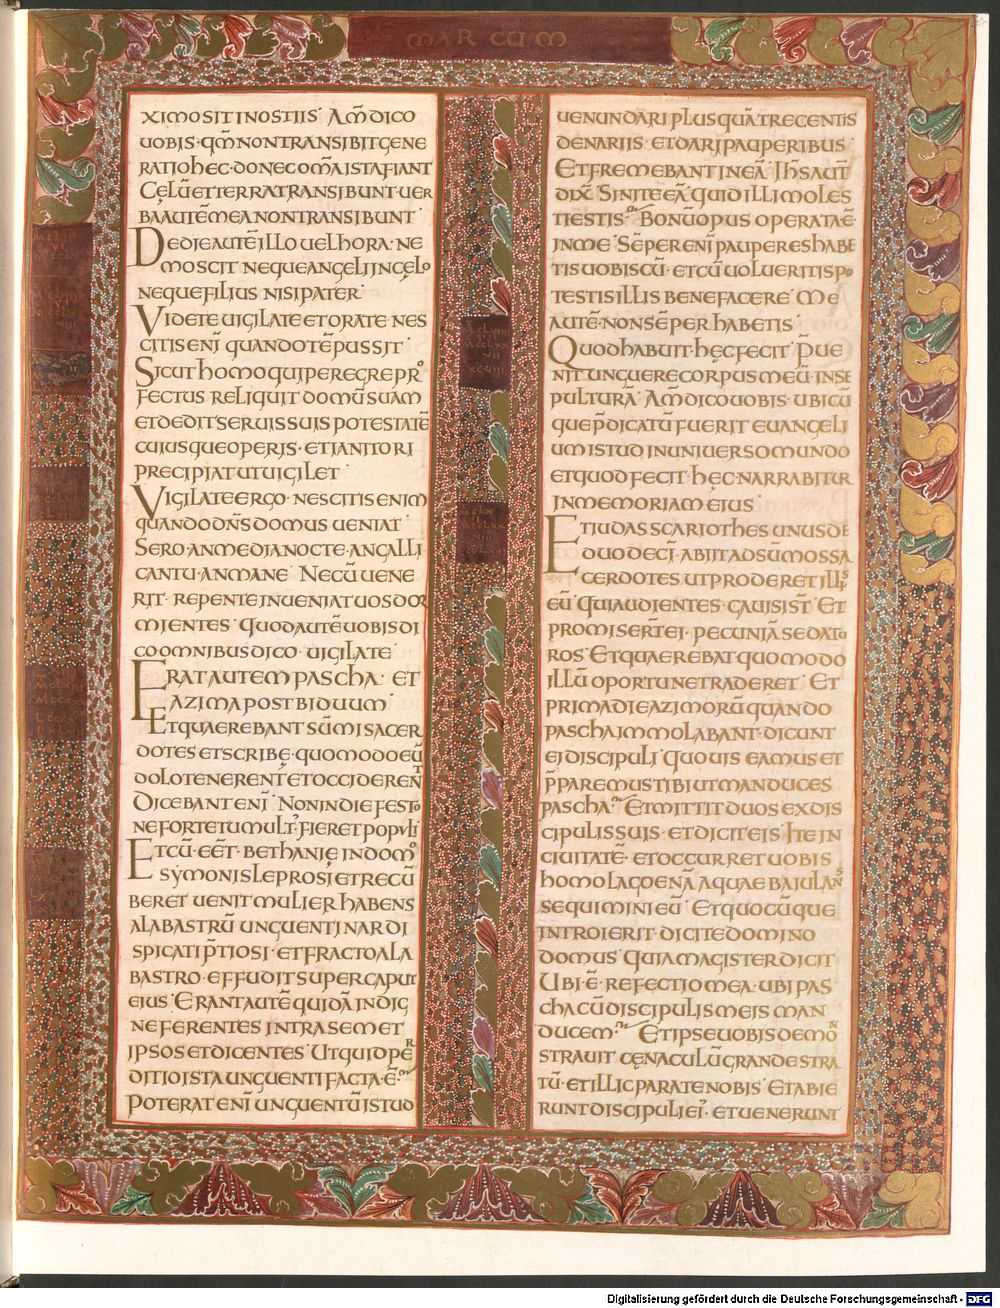 MARCUM
XIMO SIT INOSTIIS AM̄ DICO
UOBIS · QM̄ NON TRANSIBIT GENE
RATIO HEC · DONEC OM̄A ISTA FIANT
CĘLŪ ET TERRA TRANSIBUNT · UER
BA AUTĒ MEA NON TRANSIBUNT ·
DE DIE AUTĒ ILLO UEL HORA · NE
MO SCIT NEQUE ANGELI IN CĘLO
NEQUE FILIUS NISI PATER ·
VIDETE UIGILATE ET ORATE · NES
CITIS ENĪ QUANDO TĒPUS SIT ·
SICUT HOMO QUI PEREGRE PRO
FECTUS RELIQUIT DOMŪ SUAM
ET DEDIT SERUIS SUIS POTESTATĒ
CUIUSQUE OPERIS · ET IANITORI
PRECIPIAT UT UIGILET ·
VIGILATE ERGO · NESCITIS ENIM
QUANDO DN̄S DOMUS UENIAT ·
SERO · AN MEDIA NOCTE · AN GALLI
CANTU · AN MANE · NE CŪ UENE
RIT · REPENTE INUENIAT UOS DOR
MIENTES · QUOD AUTĒ UOBIS DI
CO OMNIBUS DICO · UIGILATE
ERAT AUTEM PASCHA · ET
AZIMA POST BIDUUM ·
ET QUAEREBANT SŪMI SACER
DOTES ET SCRIBĘ · QUOMODO EŪ
DOLO TENERENT ET OCCIDERENT
DICEBANT ENĪ · NON IN DIE FESTO
NE FORTE TUMULT, FIERET POPULI
ET CŪ EĒT · BETHANIĘ IN DOMO
SYMONIS LEPROSI ET RECŪ
BERET UENIT MULIER HABENS
ALABASTRŪ UNGUENTI NARDI
SPICATI P̄TIOSI · ET FRACTO ALA
BASTRO · EFFUDIT SUPER CAPUT
EIUS · ERANT AUTĒ QUIDĀ INDIG
NE FERENTES INTRA SEMET
IPSOS ET DICENTES · UT QUID PER
DITIO ISTA UNGUENTI FACTA Ē ·
POTERAT ENĪ UNGUENTŪ ISTUD
UENUNDARI PLUS QUĀ TRECENTIS
DENARIIS · ET DARI PAUPERIBUS ·
ET FREMEBANT IN EĀ · IHS AUT̄
DIX̄ · SINITE EĀ · QUID ILLI MOLES
TI ESTIS · BONŪ OPUS OPERATA Ē ·
IN ME · SĒPER ENĪ PAUPERES HABE
TIS UOBISCŪ · ET CŪ UOLUERITIS PO
TESTIS ILLIS BENEFACERE · ME
AUTĒ · NON SĒPER HABETIS ·
QUOD HABUIT · HĘC FECIT · P̄UE
NIT UNGUERE CORPUS MEŪ IN SE
PULTURĀ · AM̄ DICO UOBIS · UBICŪ
QUE P̄DICATŪ FUERIT EUANGELI
UM ISTUD IN UNIUERSO MUNDO
ET QUOD FECIT · HĘC · NARRABITUR
IN MEMORIAM EIUS ·
ET IUDAS SCARIOTHES UNUS DE
DUODECĪ · ABIIT AD SŪMOS SA
CERDOTES UT PRODERET ILLIS
EŪ QUI AUDIENTES · GAUISI ST̄ · ET
PROMISERT̄ EI · PECUNIĀ SE DATU
ROS · ET QUAEREBAT QUOMODO
ILLŪ OPORTUNE TRADERET · ET
PRIMA DIE AZIMORŪ QUANDO
PASCHA IMMOLABANT · DICUNT
EI DISCIPULI · QUO UIS EAMUS ET
P̄PAREMUS TIBI UT MANDUCES
PASCHA · ET MITTIT DUOS EX DIS
CIPULIS SUIS · ET DICIT EIS · ITE IN
CIUITATĒ · ET OCCURRET UOBIS
HOMO LAGOENĀ AQUAE BAIULANS
SEQUIMINI EŪ · ET QUOCŪQUE
INTROIERIT · DICITE DOMINO
DOMUS · QUIA MAGISTER DICIT
UBI Ē · REFECTIO MEA · UBI PAS
CHA CŪ DISCIPULIS MEIS MAN
DUCEM · ET IPSE UOBIS DEMON
STRAUIT CĘNACULŪ GRANDE STRA
TŪ · ET ILLIC PARATE NOBIS · ET ABIE
RUNT DISCIPULI EI, · ET UENERUNT
Digitalisierung gefördert durch die Deutsche Forschungsgemeinschaft - DFG